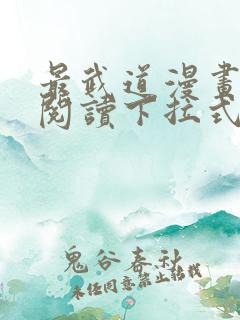 最武道漫畫
閱讀下拉式
鬼谷春秋
未经同意禁止转载